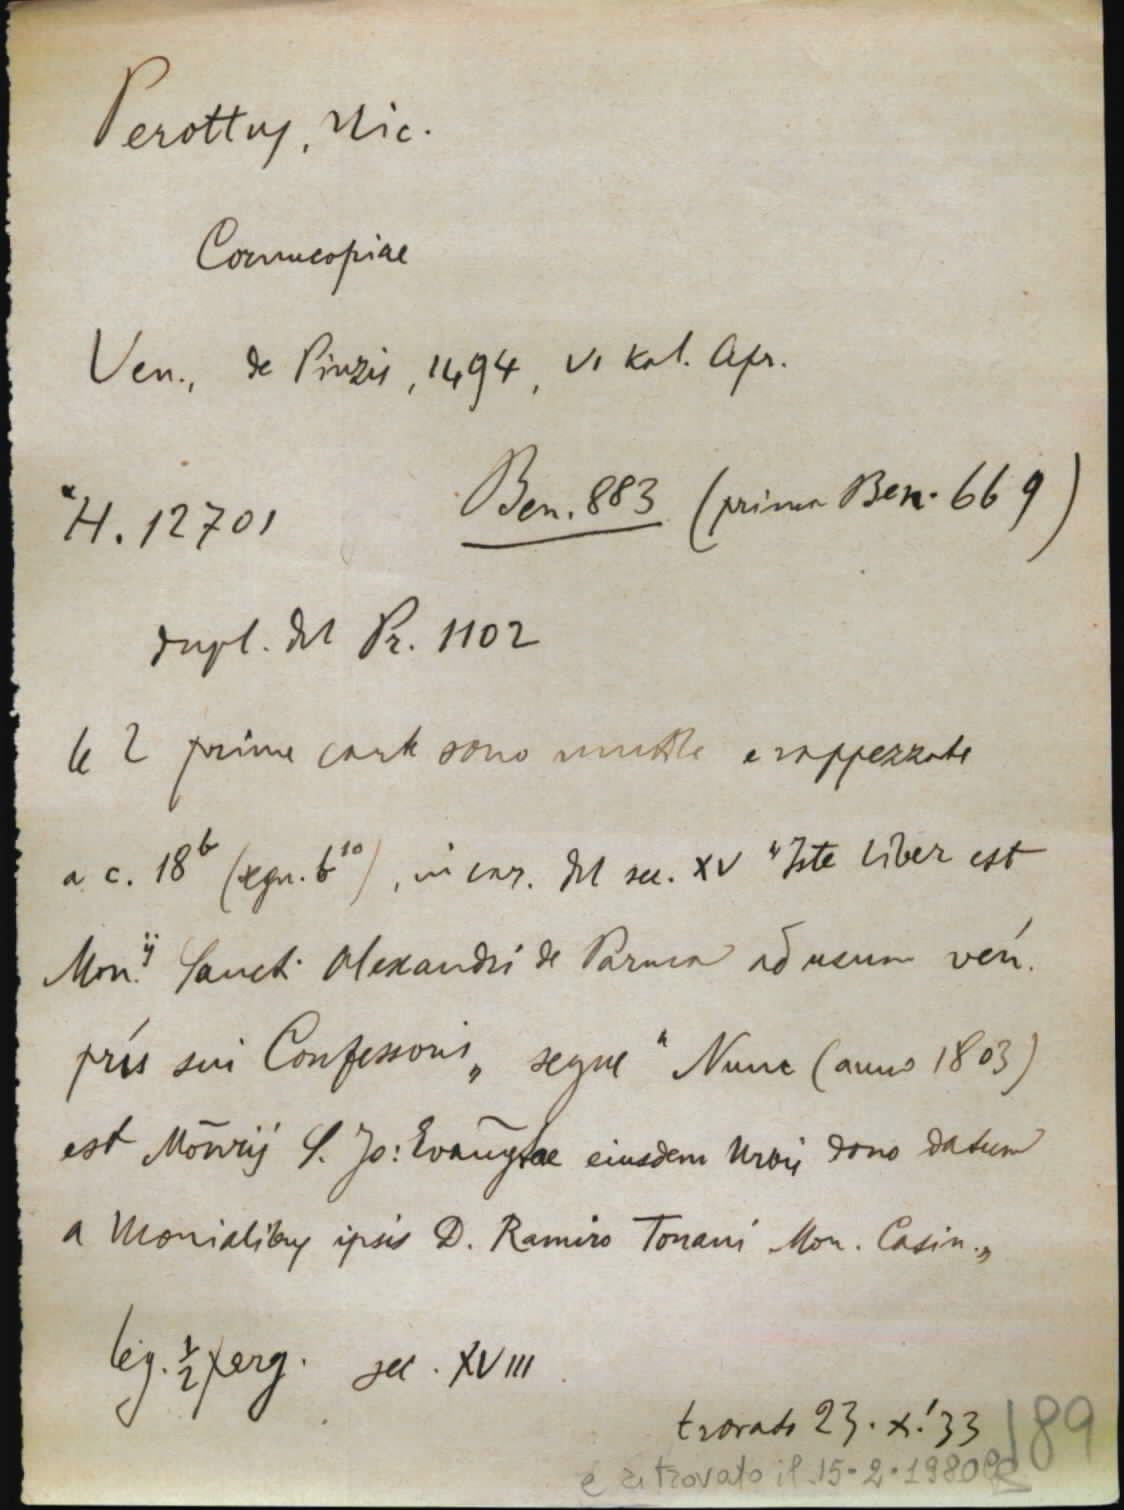 Perottus, Nic.
Cornucopiae
Ven., de Pinzis, 1494, VI Kal. Apr.
*H. 12701 Ben. 883 (prima Ben. 669)
dupl. del Pr. 1102
le 2 prime carte sono mutile e rappezzate
a c. 18b (segn. b10), in car. del sec. XV "Iste liber est
Mon.ij Sancti Alexandri de Parma ad usum ven.
pris sui Confessoris„ segue "Nunc (anno 1803)
est Mōnrij S. Jo: Evangtae eiusdem Urbis dono datum
a Monialibus ipsis D. Ramiro Tonani Mon. Casin.„
leg. 1/2 perg. sec. XVIII
trovato 23.X.'33
e ritrovato il 15-2-1980
189